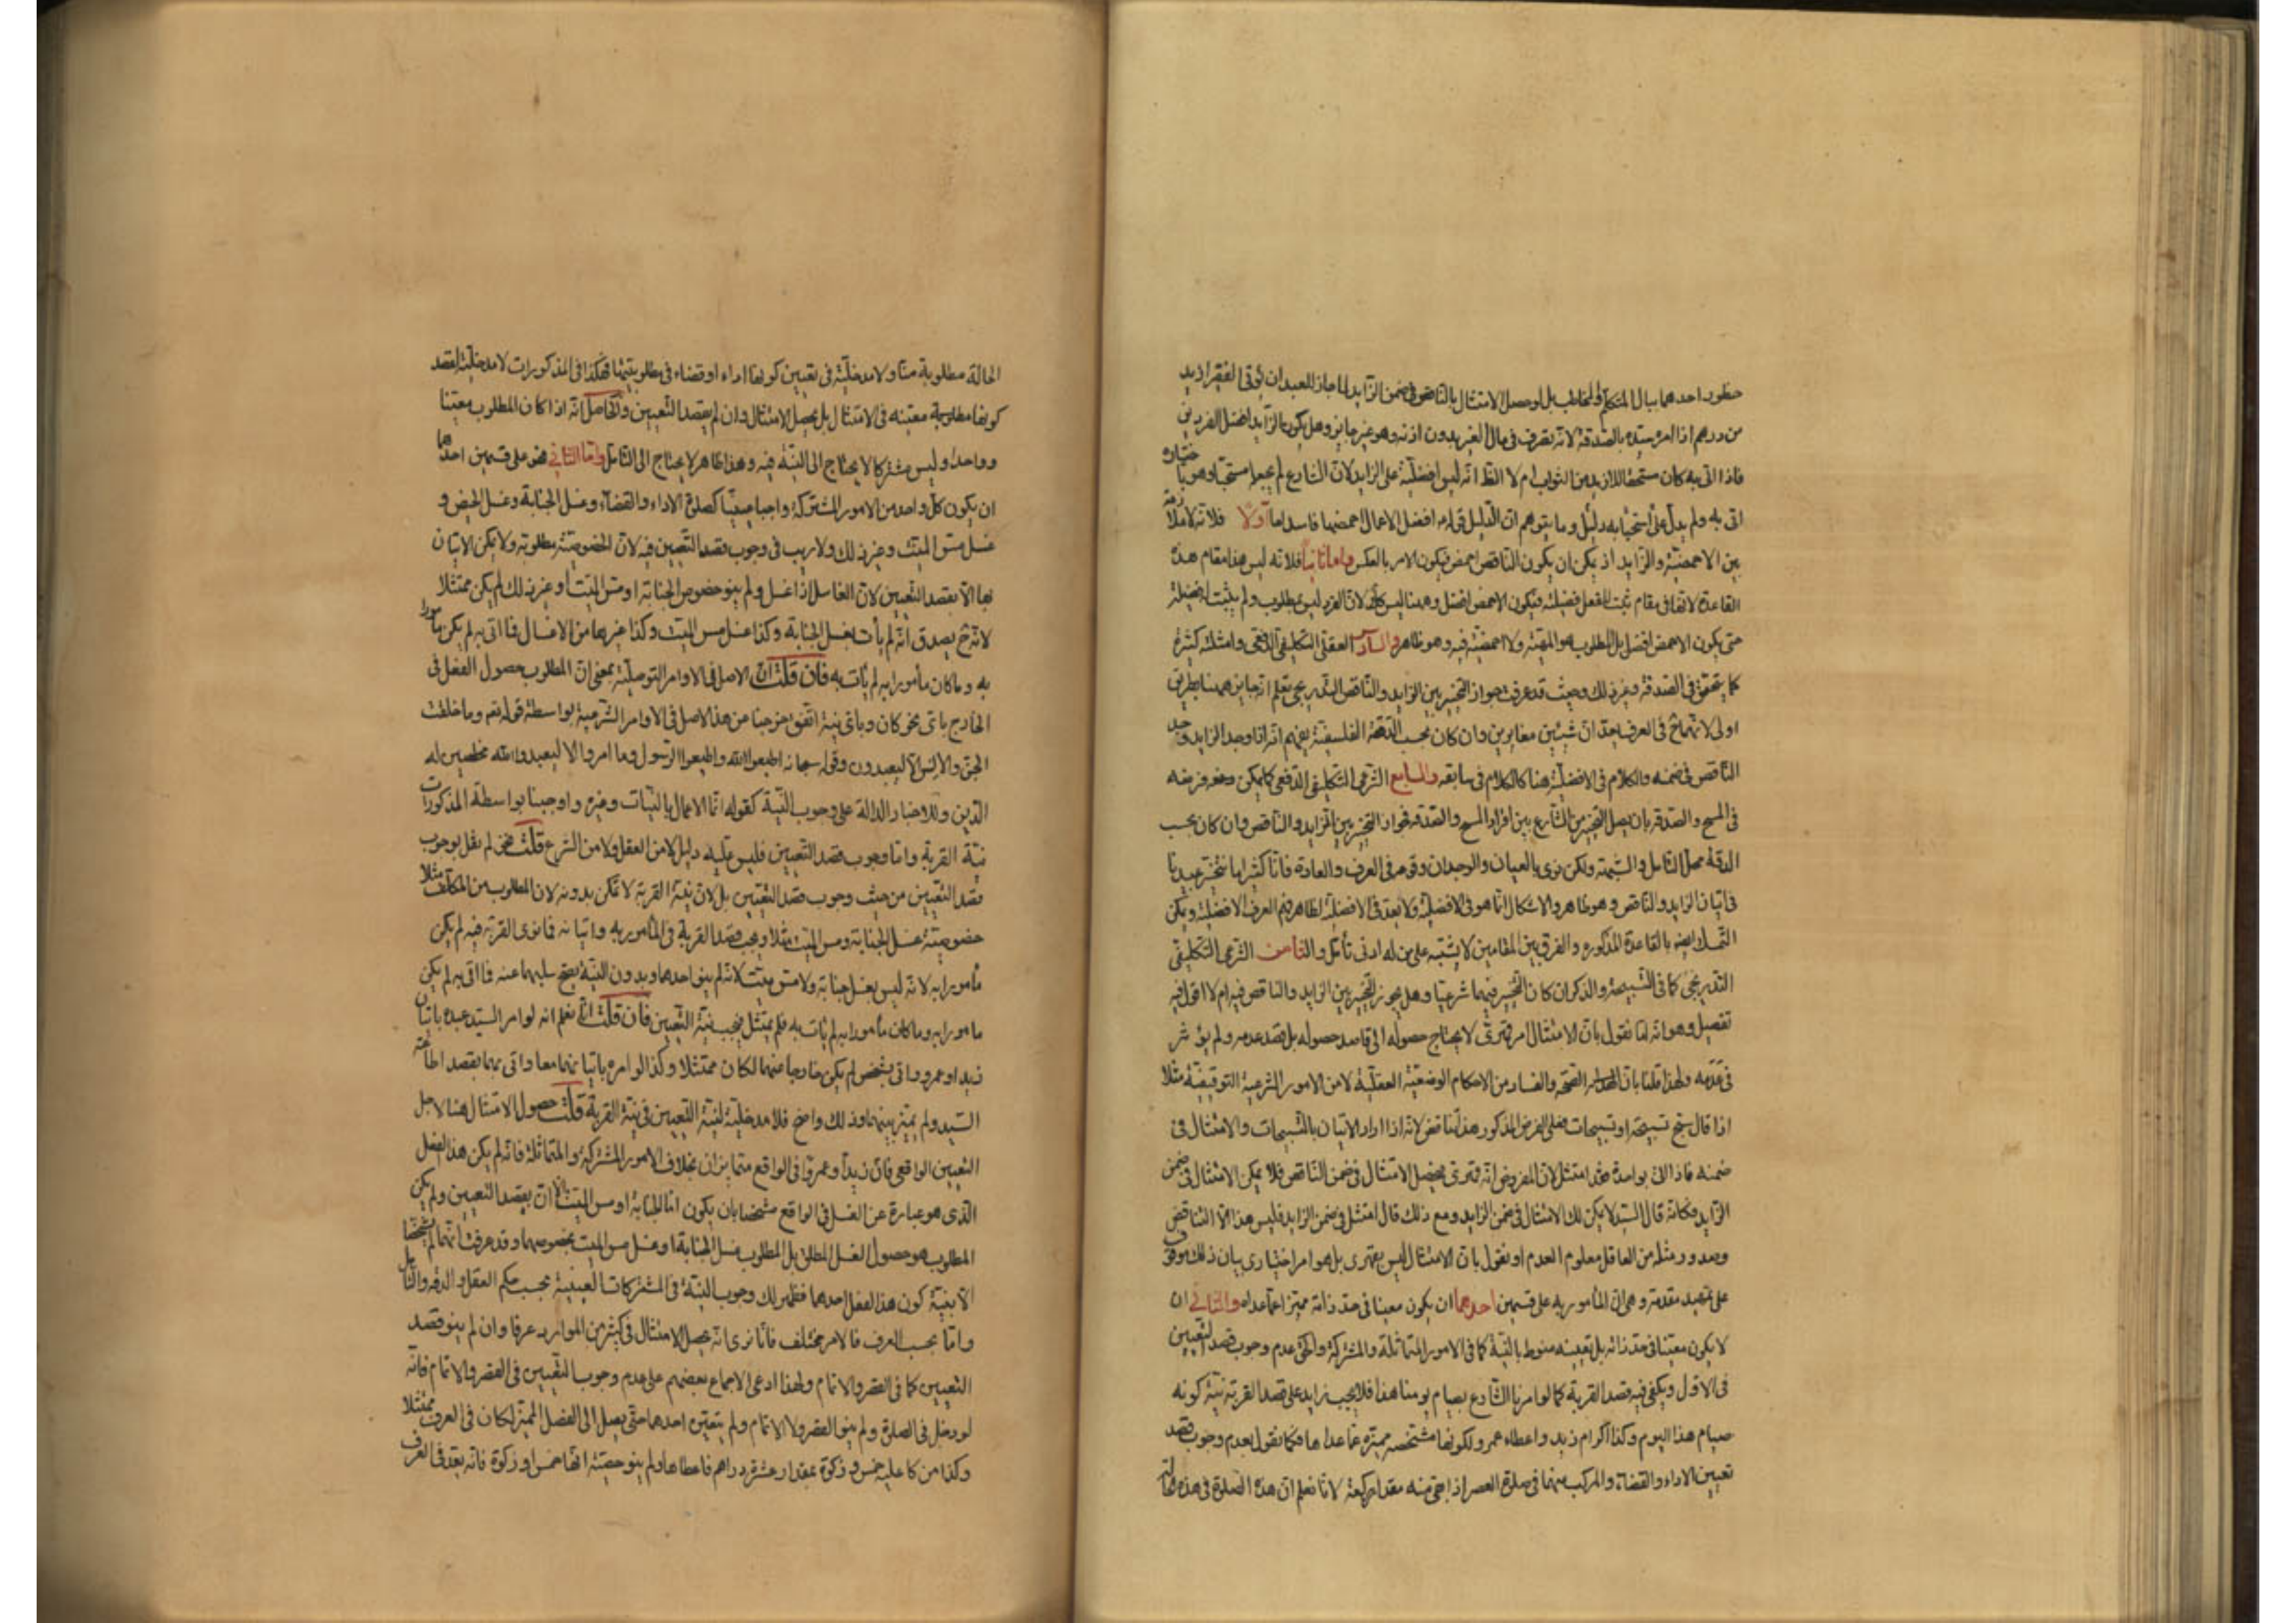 خطور احدهما ببال المتكلم والمخاطب بل لو حصل الامتثال بالناقص فى ضمن الزايد لما جاز للعبد ان يؤتى الفقير ازيد
من درهم اذا امره سيده بالصدقة لانه تصرف فى مال الغير بدون اذنه وهو غير جايز وهل يكون الزايد افضل الفردين
فاذا اتى به كان مستحقا للازيد من الثواب ام لا الظ انه ليس افضلية على الزايد لان الشارع لم يجعله مستحبا وهو باختياره
اتى به ولم يدل على استحبابه دليل وما يتوهم ان الدليل قوله افضل الاعمال احمضها فاسد اما اولا فلانه لا ملازمة
بين الاحمضية والزايد اذ يمكن ان يكون الناقص احمض فيكون الامر بالعكس واما ثانيا فلانه ليس هذا مقام هذه
القاعدة لانها فى مقام ثبت للفعل فضيلة فيكون الاحمض افضل وهيهنا ليس كك لان الفرد ليس بمطلوب ولم يثبت له فضيلة
حتى يكون الاحمض افضل بل المطلوب هو المهية ولا احمضية فيه وهو ظاهر والسادس العقلى التكليفى الدفعى وامثلته كثيرة
كما يتحقق فى الصدقة وغير ذلك وحيث قد عرفت جواز التخيير بين الزايد والناقص التدريجى تعلم انه جايز هيهنا بطريق
اولى لانهما ح فى العرف يعدان شيئين مغايرين وان كان بحسب الدقة الفلسفية يفهم انه اذا وجد الزايد وجد
الناقص فى ضمنه والكلام فى الافضلية هنا كالكلام فى سابقه والسابع الشرعى التكليفى الدفعى كما يمكن وضعه وفرضه
فى المسح والصدقة بان يصل التخيير من الشارع بين افراد المسح والصدقة فجواز التخيير بين الزايد والناقص وان كان بحسب
الدقة محل التامل والشبهة ولكن نرى بالعيان والوجدان وقوعه فى العرف والعادة فانا كثيرا ما نخير عبيدنا
فى اتيان الزايد والناقص وهو ظاهر والاشكال انما هو فى الافضلية ولا يبعد فى الافضلية لظاهر فهم العرف الافضلية ويمكن
التمسك ايضه بالقاعدة المذكورة والفرق بين المقامين لا يشتبه على من له ادنى تأمل والثامن الشرعى التكليفى
التدريجى كما فى التسبيحة والذكر ان كان التخيير فيهما شرعيا وهل يجوز التخيير بين الزايد والناقص فيه ام لا اقول فيه
تفصيل وهو انه لما نقول بان الامتثال امر قهرى لا يحتاج حصوله الى قاصد حصوله بل قصد عدمه ولم يؤثر
فى عدمه ولهذا قلنا بان الصحة والفساد من الاحكام الوضعية العقلية لا من الامور الشرعية التوقيفية مثلا
اذا قال سبح تسبيحة او تسبيحات فعلى الفرض المذكور هذا تناقض لانه اذا اراد الاتيان بالتسبيحات والامتثال فى
ضمنه فاذا اتى بواحدة فقد امتثل لان المفروض انه قهرى يحصل الامتثال فى ضمن الناقص فلا يمكن الامتثال فى ضمن
الزايد فكانه قال السيد لا يمكن لك الامتثال فى ضمن الزايد ومع ذلك قال امتثل فى ضمن الزايد فليس هذا الا التناقض
وصدور مثله من العاقل معلوم العدم او نقول بان الامتثال ليس بقهرى بل هو امر اختيارى بيان ذلك موقوف
على تمهيد مقدمة وهى ان المأمور به على قسمين احدهما ان يكون معينا فى حد ذاته مميزا عما عداه والثانى ان
لا يكون معينا فى حد ذاته بل تعيينه منوط بالنية كما فى الامور المتماثلة والمشتركة والحق عدم وجوب قصد التعيين
فى الاول ويكفى فيه قصد القربة كما لو امرنا الشارع بصيام يومنا هذا فلا يجب زايد على قصد القربة نية كونه
صيام هذا اليوم وكذا اكرام زيد واعطاء عمرو لكونها مشخصة مميزة عما عداها فكما نقول بعدم وجوب قصد
تعيين الاداء والقضاء والمركب منهما فى صلوة العصر اذا بقى منه مقدار ركعة لانا نعلم ان هذه الصلوة فى هذه الحالة
الحالة مطلوبة منا ولا مدخلية فى تعيين كونها اداء او قضاء فى مطلوبيتها فهكذا فى المذكورات لا مدخلية لقصد
كونها مطلوبة معينه فى الامتثال بل يحصل الامتثال وان لم يقصد التعيين والحاصل انه اذا كان المطلوب معينا
وواحدا وليس مشتركا لا يحتاج الى النية فيه وهذا ظاهر لا يحتاج الى التامل واما الثانى فهو على قسمين احدهما
ان يكون كل واحد من الامور المشتركة واجبا عينيا كصلوة الاداء والقضاء وغسل الجنابة وغسل الحيض و
غسل مس الميت وغير ذلك ولا ريب فى وجوب قصد التعيين فيه لان الخصوصية مطلوبة ولا يمكن الاتيان
بها الا بقصد التعيين لان الغاسل اذا غسل ولم ينو خصوص الجنابة او مس الميت او غير ذلك لم يكن ممتثلا
لانه ح يصدق انه لم يأت بغسل الجنابة وكذا غسل مس الميت وكذا غيرها من الاغسال فما اتى به لم يكن مأمورا
به وما كان مأمورا به لم يأت به فان قلت ان الاصل فى الاوامر التوصلية بمعنى ان المطلوب حصول الفعل فى
الخارج باى نحو كان وباى نية اتفق خرجنا من هذا الاصل فى الاوامر الشرعية بواسطة قوله تعه وما خلقت
الجن والانس الا ليعبدون وقوله سبحانه اطيعوا الله واطيعوا الرسول وما امروا الا ليعبدوا الله مخلصين له
الدين وللاخبار الدالة على وجوب النية كقوله انما الاعمال بالنيات وغيره واوجبنا بواسطة المذكورات
نية القربة واما وجوب قصد التعيين فليس عليه دليل لا من العقل ولا من الشرع قلت نحن لم نقل بوجوب
قصد التعيين من حيث وجوب قصد التعيين بل لان نية القربة لا تمكن بدونه لان المطلوب من المكلف مثلا
خصوصية غسل الجنابة ومس الميت مثلا ويجب قصد القربة فى المأمور به واتيانه فما نوى القربة فيه لم يكن
مأمورا به لانه ليس بغسل جنابة ولا مس ميت لانه لم ينو احدهما وبدون النية يصح سلبهما عنه فما اتى به لم يكن
مامورا به وما كان مأمورا به لم يأت به فلم يمتثل فيجب نية التعيين فان قلت انا نعلم انه لو امر السيد عبده باتيان
زيد او عمرو واتى بشخص لم يكن خارجا عنهما لكان ممتثلا وكذا لو امره باتيانهما معا واتى بهما بقصد اطاعة
السيد ولم يميز بينهما وذلك واضح فلا مدخلية لنية التعيين فى نية القربة قلت حصول الامتثال هنا لاجل
التعيين الواقعى فان زيدا وعمروا فى الواقع متمايزان بخلاف الامور المشتركة والمتماثلة فانه لم يكن هذا الفعل
الذى هو عبارة عن الغسل فى الواقع مشخصا بان يكون اما للجنابة او مس الميت الا ان يقصد التعيين ولم يكن
المطلوب هو حصول الغسل المطلق بل المطلوب غسل الجنابة او غسل مس الميت بخصوصهما وقد عرفت انهما لم يشخصا
الا بنية كون هذا الغسل احدهما فظهر لك وجوب النية فى المشتركات العينية بحسب حكم العقل والدقة والتامل
واما بحسب العرف فالامر مختلف فانا نرى انه يحصل الامتثال فى كثير من الموارد عرفا وان لم ينو قصد
التعيين كما فى القصر والاتمام ولهذا ادعى الاجماع بعضهم على عدم وجوب التعيين فى القصر والاتمام فانه
لو دخل فى الصلوة ولم ينو القصر ولا الاتمام ولم يتعين احدهما حتى يصل الى الفصل المميز لكان فى العرف ممتثلا
وكذا من كا عليه خمس و زكوة بمقدار عشرة دراهم فاعطاها ولم ينو حصته انها خمس او زكوة فانه يعد فى العرف